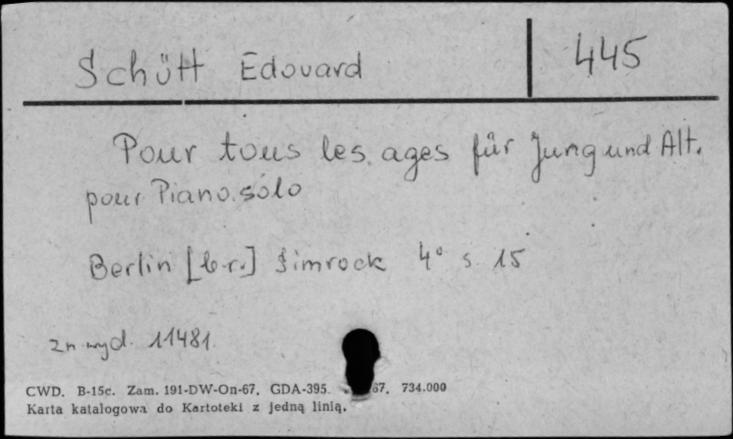 Schütt Edouard 445
Pour tous les ages für Jung und Alt.
pour Piano solo
Berlin [b.r.] Simrock 4° s 15
zn. wyd. 11481
CWD. B-15c. Zam. 191-DW-On-67. GDA-395. 67. 734.000
Karta katalogowa do Kartoteki z jedną linią.